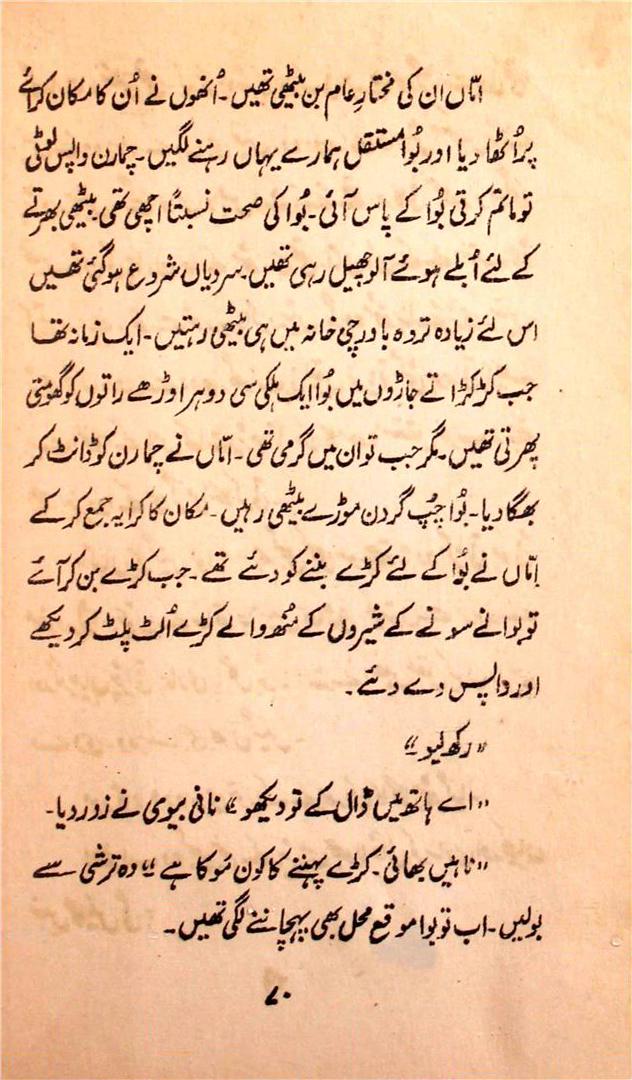 امّاں ان کی مختارِ عام بن بیٹھی تھیں۔ اُنھوں نے اُن کا مکان کرائے
پر اُٹھا دیا اور بُوا مستقل ہمارے یہاں رہنے لگیں۔ چمارن واپس لوٹی
تو ماتم کرتی بُوا کے پاس آئی۔ بُوا کی صحت نسبتاً اچھی تھی۔ بیٹھی بھرتے
کے لئے اُبلے ہوئے آلو چھیل رہی تھیں۔ سردیاں شروع ہوگئی تھیں
اس لئے زیادہ تر وہ باورچی خانہ میں ہی بیٹھی رہتیں۔ ایک زمانہ تھا
جب کڑکڑاتے جاڑوں میں بُوا ایک ہلکی سی دوہر اوڑھے راتوں کو گھومتی
پھرتی تھیں۔ مگر جب تو ان میں گرمی تھی۔ امّاں نے چمارن کو ڈانٹ کر
بھگا دیا۔ بُوا چُپ گردن موڑے بیٹھی رہیں۔ مکان کا کرایہ جمع کرکے
امّاں نے بُوا کے لئے کڑے بننے کو دئے تھے۔ جب کڑے بن کر آئے
تو بوا نے سونے کے شیروں کے مُنھ والے کڑے اُلٹ پلٹ کر دیکھے
اور واپس دے دئے۔
"رکھ لیو"
"اے ہاتھ میں ڈال کے تو دیکھو" نانی بیوی نے زور دیا۔
"ناہیں بھائی۔ کڑے پہننے کا کون مَوکا ہے" وہ ترشی سے
بولیں۔ اب تو بوا موقع محل بھی پہچاننے لگی تھیں۔
۷۰